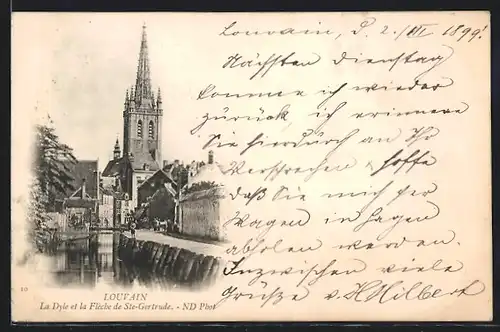 Louvain, d. 2./III 1899!
Nächsten Dienstag
komme ich wieder
zurück. Ich erinnere
Sie hierdurch an Ihr
Versprechen & hoffe
daß Sie mich per
Wagen in Hagen
abholen werden.
Inzwischen viele
Grüße v. H Hilbert
10
LOUVAIN
La Dyle et la Flèche de Ste-Gertrude. - ND Phot